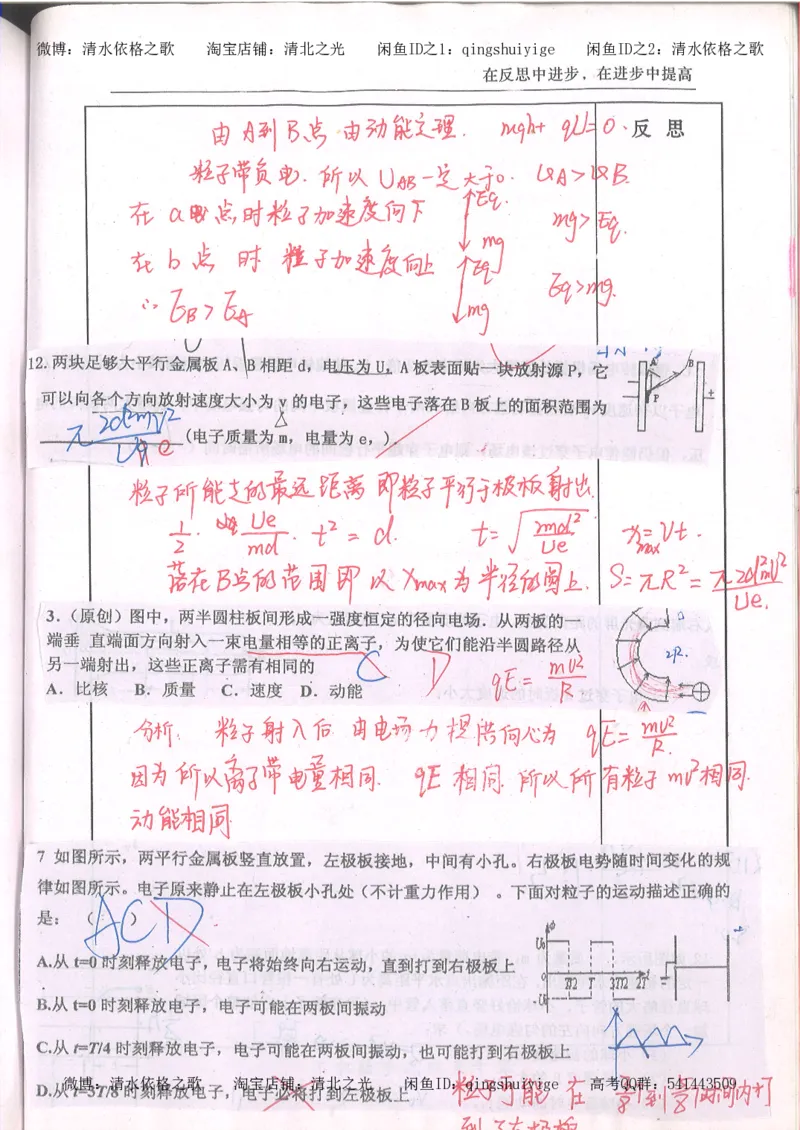 微博：清水依格之歌 淘宝店铺：清北之光 闲鱼ID之1：qingshuiyige 闲鱼ID之2：清水依格之歌
在反思中进步，在进步中提高
反 思
由A到B点 由动能定理. mgh+qU=0.
粒子带负电. 所以 UAB一定大于0. φA>φB.
在a点时粒子加速度向下 Eq. mg mg>Eq.
在b点时 粒子加速度向上 Eq mg Eq>mg.
∴ EB>EA
12. 两块足够大平行金属板 A、B 相距 d，电压为 U，A 板表面贴一块放射源 P，它
可以向各个方向放射速度大小为 v 的电子，这些电子落在 B 板上的面积范围为
(电子质量为 m，电量为 e，)
A B P +
粒子所能走的最远距离 即粒子平行于极板射出.
1/2 · Ue/md · t² = d. t=√(2md²/Ue) xmax=Vt.
落在B点的范围即以Xmax为半径的圆上. S=πR²=π2d²mV²/Ue.
3.（原创）图中，两半圆柱板间形成一强度恒定的径向电场．从两板的
端垂 直端面方向射入一束电量相等的正离子，为使它们能沿半圆路径从
另一端射出，这些正离子需有相同的
A．比核 B．质量 C．速度 D．动能
D qE=mv²/R
2R.
分析: 粒子射入后 由电场力提供向心力 qE=mv²/R.
因为所以离子带电量相同. qE 相同. 所以所有粒子mv²相同.
动能相同
7 如图所示，两平行金属板竖直放置，左极板接地，中间有小孔。右极板电势随时间变化的规
律如图所示。电子原来静止在左极板小孔处（不计重力作用）。下面对粒子的运动描述正确的
是：（ ）
ACD
A.从 t=0 时刻释放电子，电子将始终向右运动，直到打到右极板上
B.从 t=0 时刻释放电子，电子可能在两板间振动
C.从 t=T/4 时刻释放电子，电子可能在两板间振动，也可能打到右极板上
D.从 t=3T/8 时刻释放电子，电子必将打到左极板上
φ U0 -U0 T/2 T 3T/2 2T t
微博：清水依格之歌 淘宝店铺：清北之光 闲鱼ID：qingshuiyige 高考QQ群：541443509
粒子可能在